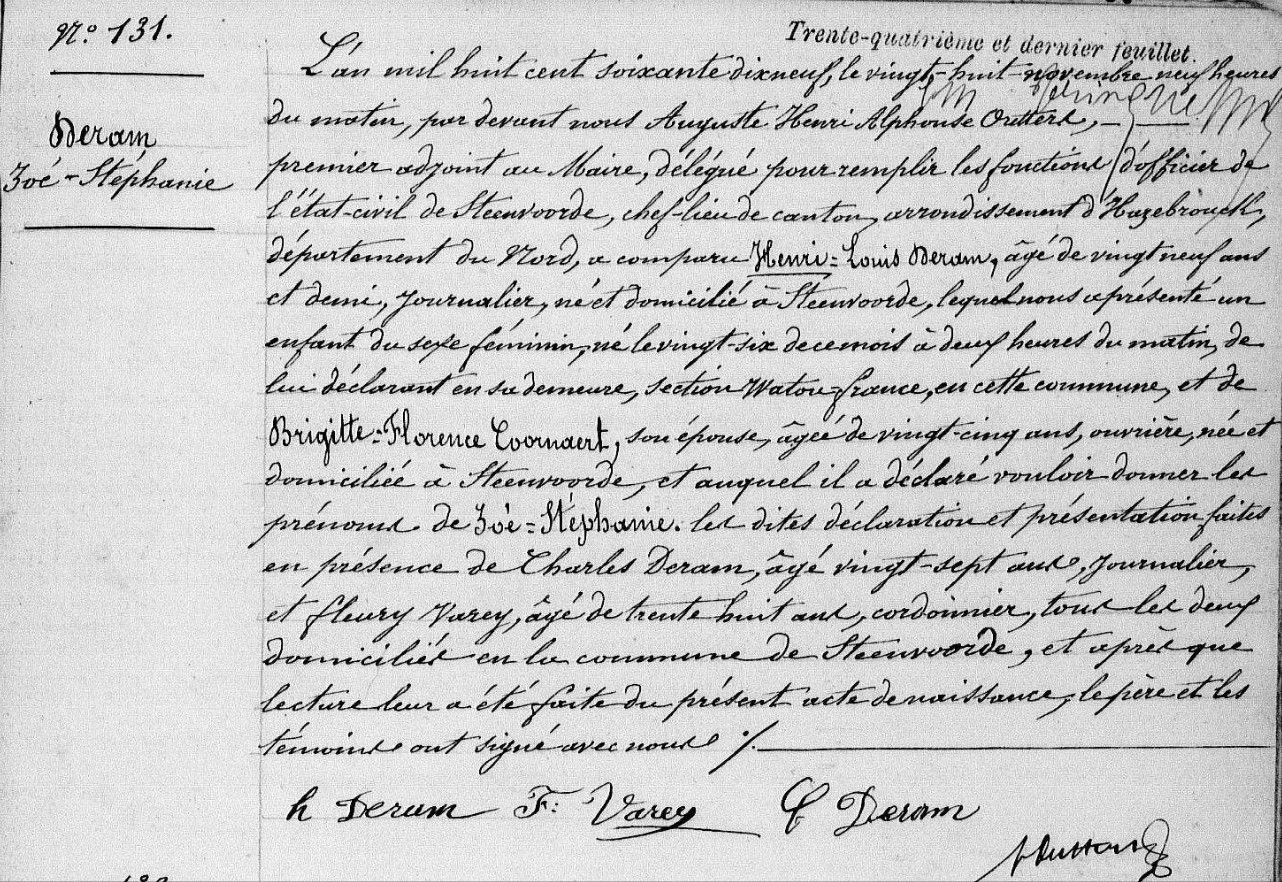 N° 131.
Trente-quatrième et dernier feuillet.
Deram
Zoé=Stéphanie
L'an mil huit cent soixante dix neuf, le vingt-huit novembre neuf heures
du matin, par devant nous Auguste Henri Alphonse Outters,
premier adjoint au Maire, délégué pour remplir les fonctions d'officier de
l'état-civil de Steenvoorde, chef-lieu de canton, arrondissement d'Hazebrouck,
département du Nord, a comparu Henri=Louis Deram, âgé de vingt neuf ans
et demi, Journalier, né et domicilié à Steenvoorde, lequel nous a présenté un
enfant du sexe féminin, né le vingt-six de ce mois à deux heures du matin, de
lui déclarant en sa demeure, section Watou-france, en cette commune, et de
Brigitte=Florence Coornaert, son épouse, âgée de vingt-cinq ans, ouvrière, née et
domiciliée à Steenvoorde, et auquel il a déclaré vouloir donner les
prénoms de Zoé=Stéphanie. les dites déclaration et présentation faites
en présence de Charles Deram, âgé vingt-sept ans, Journalier,
et fleury Varey, âgé de trente huit ans, cordonnier, tous les deux
domiciliés en la commune de Steenvoorde, et après que
lecture leur a été faite du présent acte de naissance, le père et les
témoins ont signé avec nous ./.
h Deram F: Varey C Deram